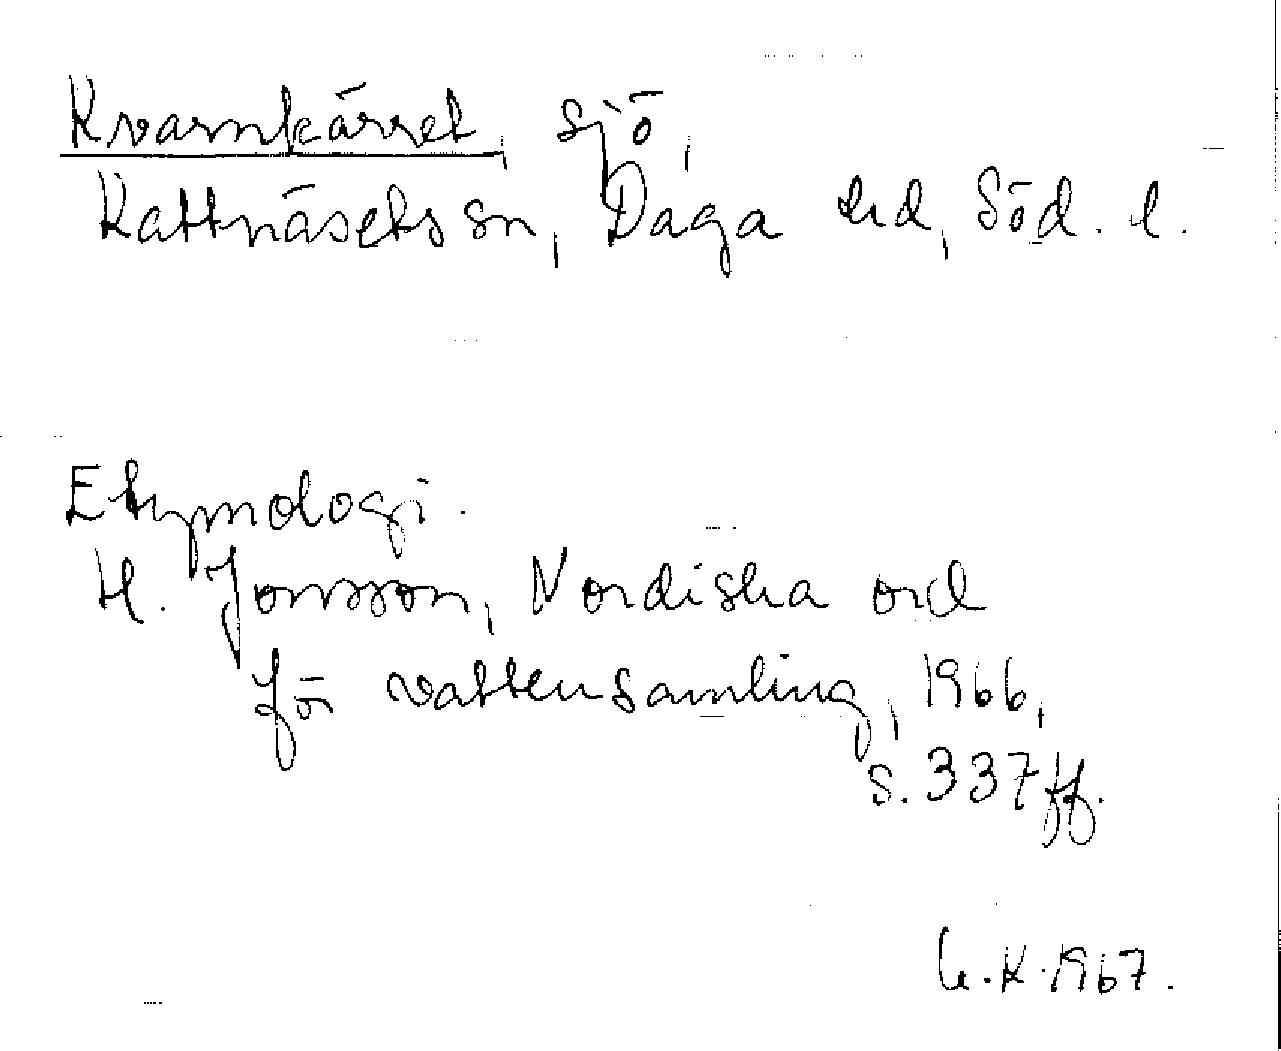 Kvarnkärret, sjö,
Kattnäsets sn, Daga hd, Söd. l.
Etymologi.
H. Jonsson, Nordiska ord
för vattensamling, 1966,
s. 337 ff.
G.K. 1967.